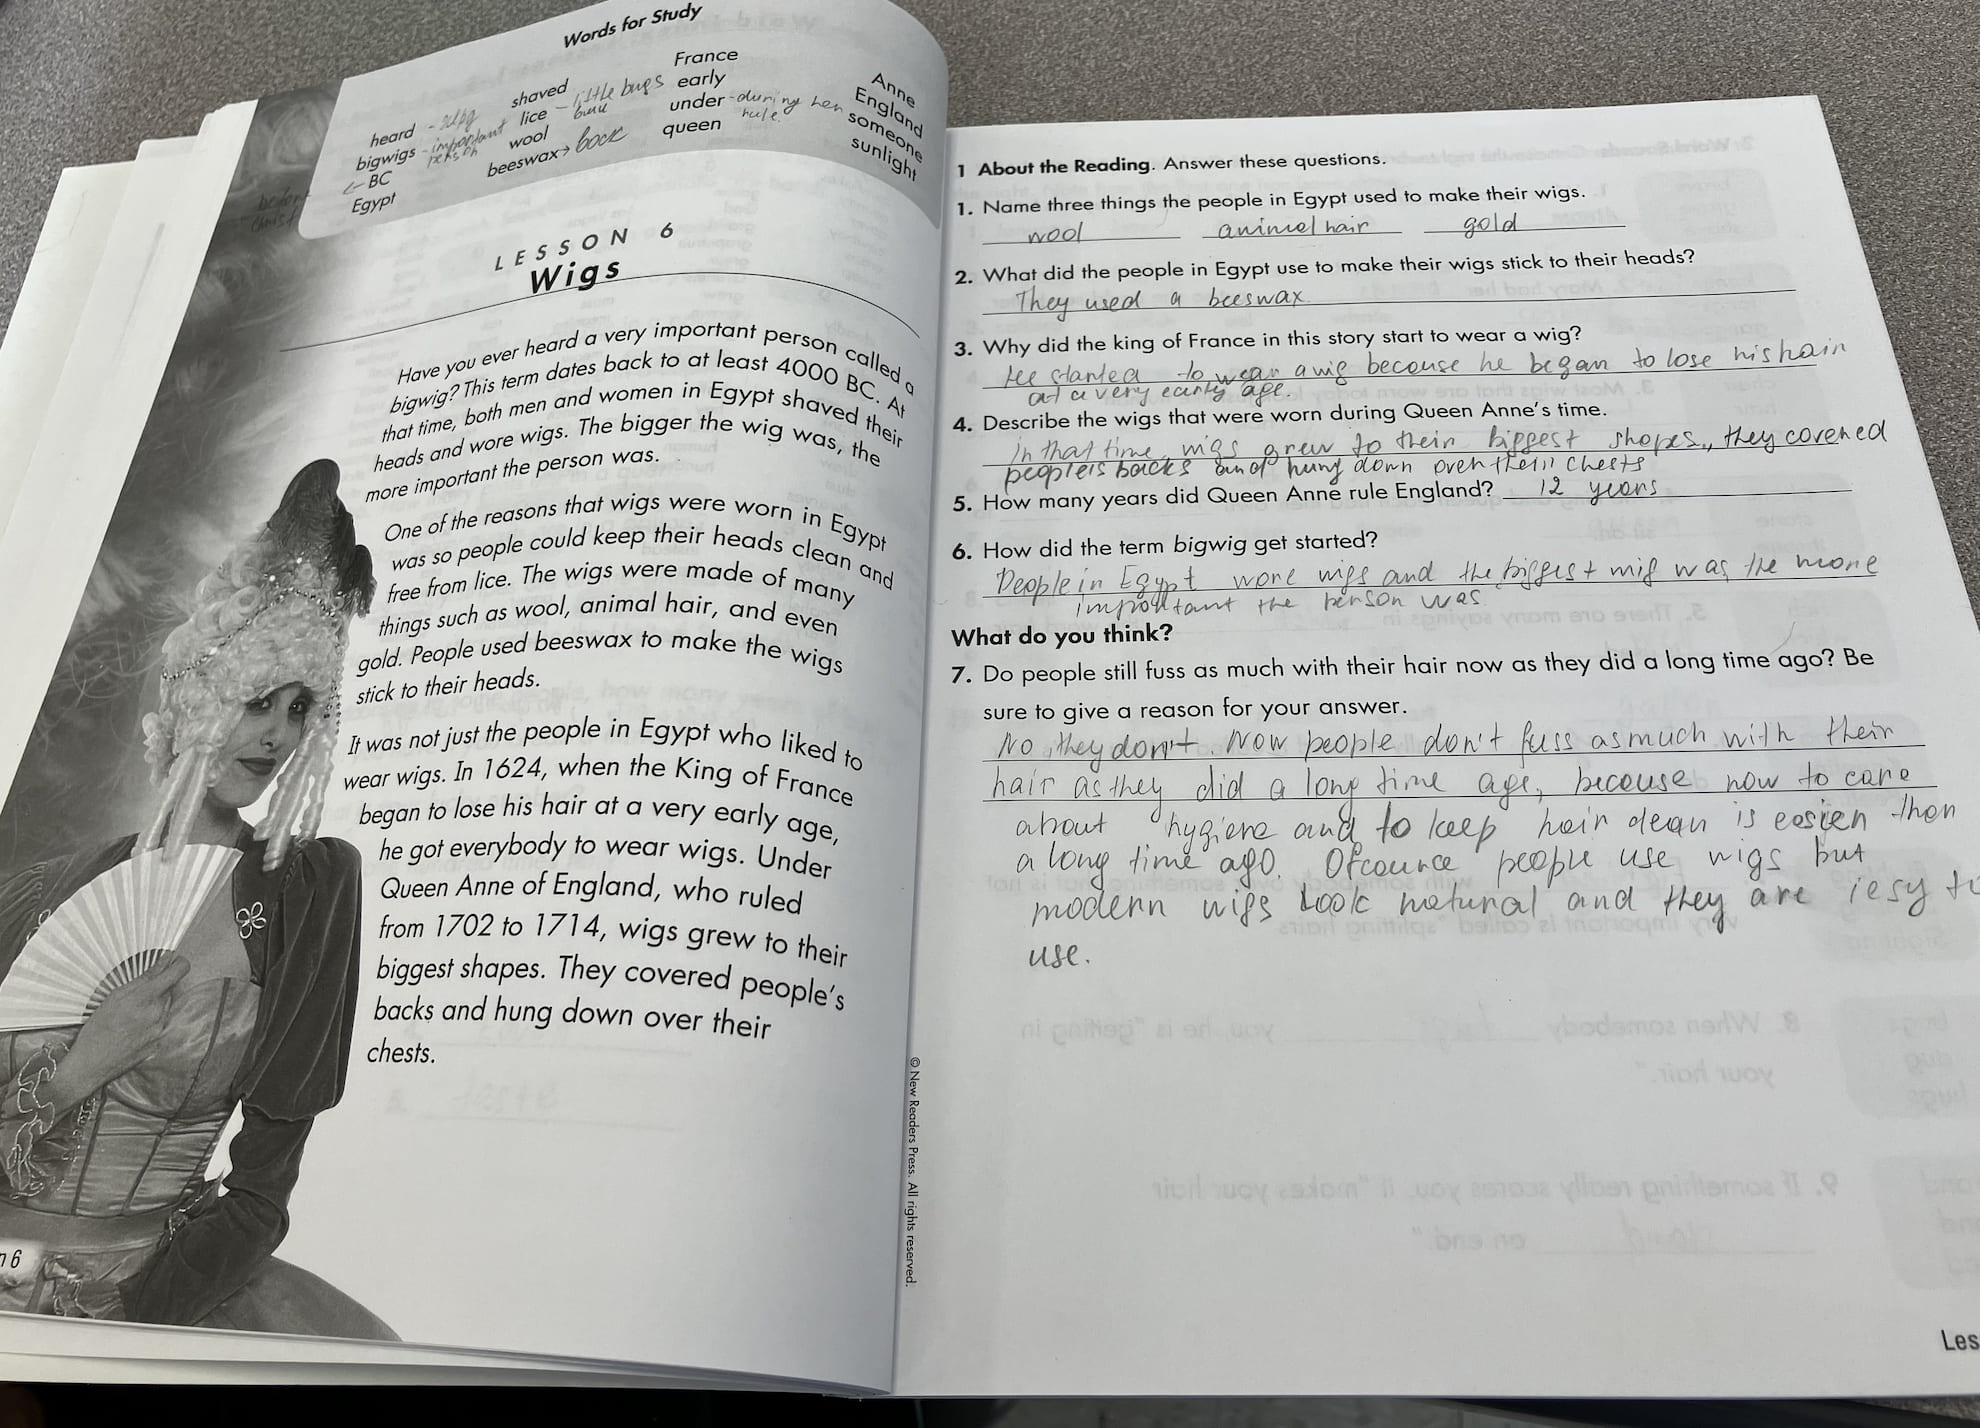 Words for Study
heard
bigwigs - important person
BC
Egypt
shaved
lice - little bugs
wool
beeswax →
France
early
under - during her rule
queen
Anne
England
someone
sunlight
LESSON 6
Wigs
Have you ever heard a very important person called a
bigwig? This term dates back to at least 4000 BC. At
that time, both men and women in Egypt shaved their
heads and wore wigs. The bigger the wig was, the
more important the person was.
One of the reasons that wigs were worn in Egypt
was so people could keep their heads clean and
free from lice. The wigs were made of many
things such as wool, animal hair, and even
gold. People used beeswax to make the wigs
stick to their heads.
It was not just the people in Egypt who liked to
wear wigs. In 1624, when the King of France
began to lose his hair at a very early age,
he got everybody to wear wigs. Under
Queen Anne of England, who ruled
from 1702 to 1714, wigs grew to their
biggest shapes. They covered people's
backs and hung down over their
chests.
n 6
© New Readers Press. All rights reserved.
1 About the Reading. Answer these questions.
1. Name three things the people in Egypt used to make their wigs.
wool animal hair gold
2. What did the people in Egypt use to make their wigs stick to their heads?
They used a beeswax
3. Why did the king of France in this story start to wear a wig?
He started to wear a wig because he began to lose his hair
at a very early age.
4. Describe the wigs that were worn during Queen Anne's time.
In that time, wigs grew to their biggest shapes, they covered
people's backs and hung down over their chests
5. How many years did Queen Anne rule England? 12 years
6. How did the term bigwig get started?
People in Egypt wore wigs and the biggest wig was the more
important the person was
What do you think?
7. Do people still fuss as much with their hair now as they did a long time ago? Be
sure to give a reason for your answer.
No, they don't. Now people don't fuss as much with their
hair as they did a long time age, because now to care
about hygiene and to keep hair clean is easier then
a long time ago. Ofcource people use wigs but
modern wigs look natural and they are iesy to
use.
Les